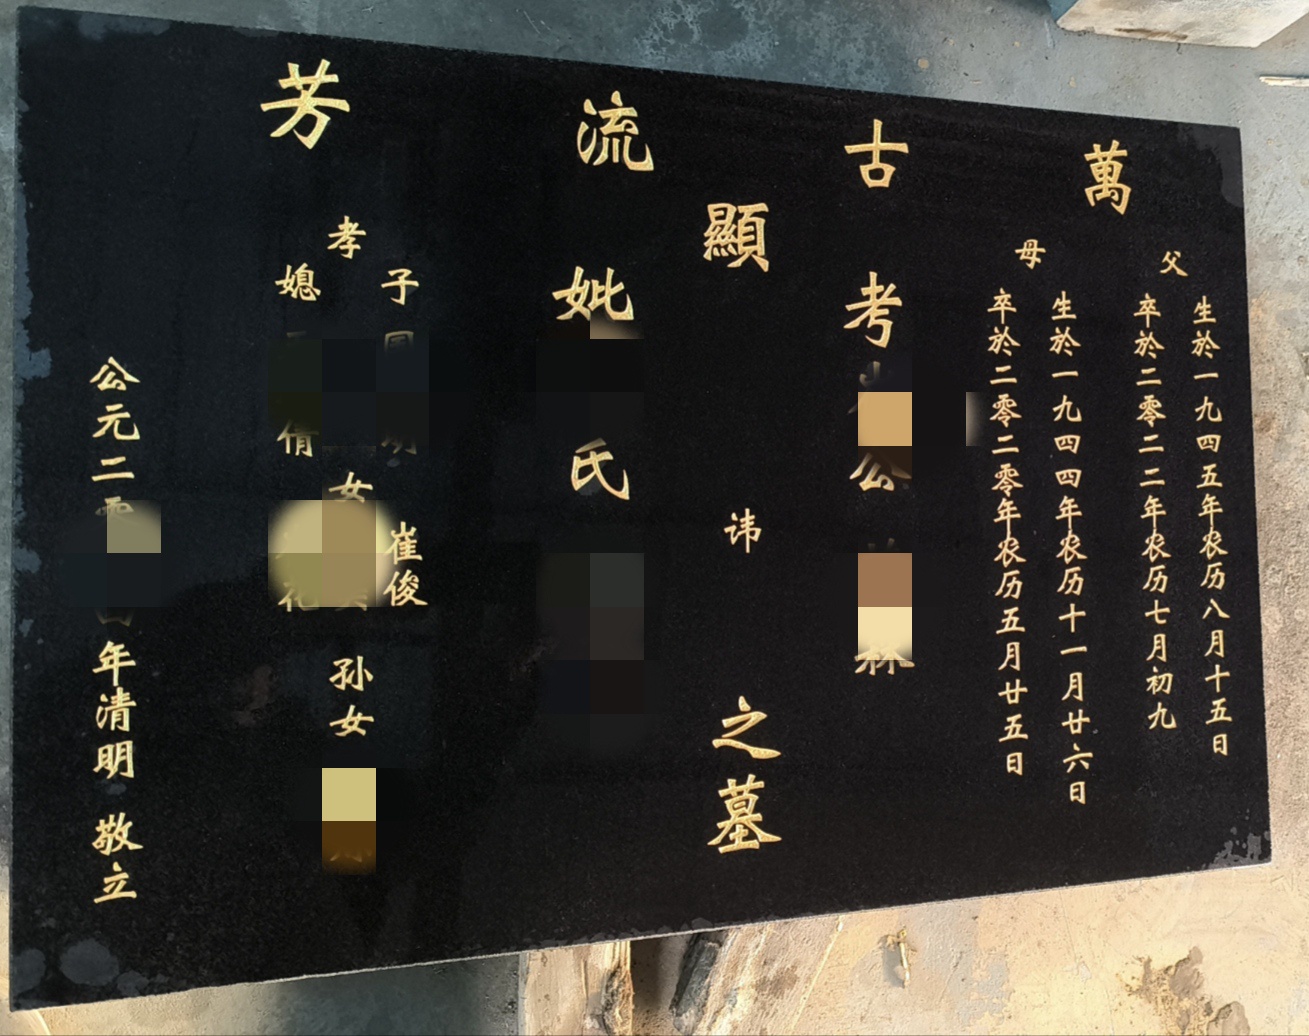 萬古流芳
父
生於一九四五年农历八月十五日
卒於二零二二年农历七月初九
母
生於一九四四年农历十一月廿六日
卒於二零二零年农历五月廿五日
顯
考 公 森
讳
之墓
妣 氏
孝
子
媳 倩
女
崔俊
孙女
公元二零 年清明 敬立